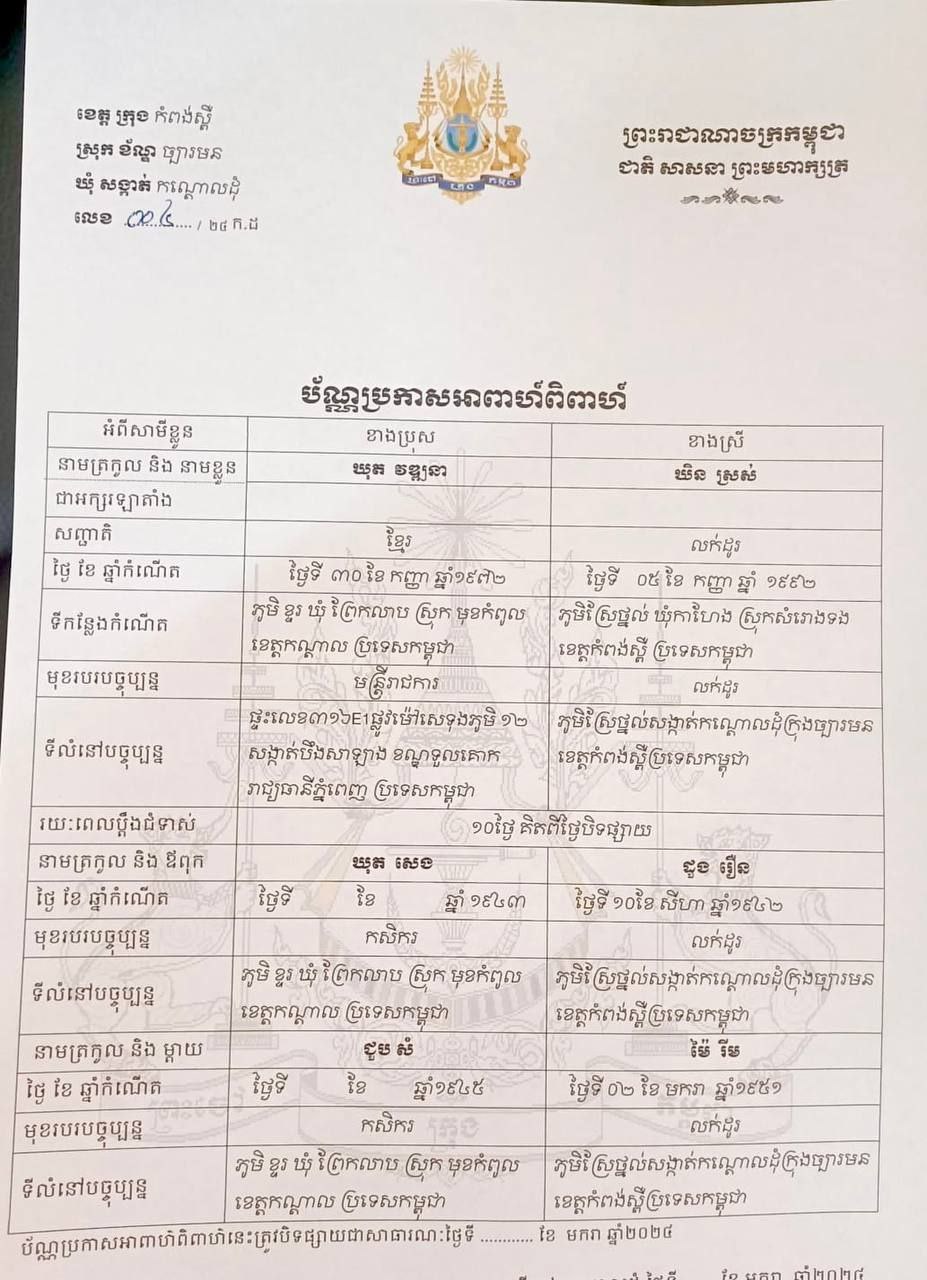 ខេត្ត ក្រុង កំពង់ស្ពឺ
ស្រុក ខ័ណ្ឌ ច្បារមន
ឃុំ សង្កាត់ កណ្ដោលដុំ
លេខ ............ / ២៤ ក.ដ
ព្រះរាជាណាចក្រកម្ពុជា
ជាតិ សាសនា ព្រះមហាក្សត្រ
ប័ណ្ណប្រកាសអាពាហ៍ពិពាហ៍
អំពីសាមីខ្លួន ខាងប្រុស ខាងស្រី
នាមត្រកូល និង នាមខ្លួន ឃុត វឌ្ឍនា ឃិន ស្រស់
ជាអក្សរឡាតាំង
សញ្ជាតិ ខ្មែរ លក់ដូរ
ថ្ងៃ ខែ ឆ្នាំកំណើត ថ្ងៃទី ៣០ ខែ កញ្ញា ឆ្នាំ១៩៧២ ថ្ងៃទី ០៥ ខែ កញ្ញា ឆ្នាំ ១៩៩២
ទីកន្លែងកំណើត ភូមិ ខ្ទរ ឃុំ ព្រែកលាប ស្រុក មុខកំពូល ភូមិស្រែថ្នល់ ឃុំកាហែង ស្រុកសំរោងទង
ខេត្តកណ្ដាល ប្រទេសកម្ពុជា ខេត្តកំពង់ស្ពឺ ប្រទេសកម្ពុជា
មុខរបរបច្ចុប្បន្ន មន្ត្រីរាជការ លក់ដូរ
ទីលំនៅបច្ចុប្បន្ន ផ្ទះលេខ៣១៦E1ផ្លូវម៉ៅសេទុងភូមិ ១២ ភូមិស្រែថ្នល់សង្កាត់កណ្ដោលដុំក្រុងច្បារមន
សង្កាត់បឹងសាឡាង ខណ្ឌទួលគោក ខេត្តកំពង់ស្ពឺប្រទេសកម្ពុជា
រាជ្យធានីភ្នំពេញ ប្រទេសកម្ពុជា
រយៈពេលប្ដឹងជំទាស់ ១០ថ្ងៃ គិតពីថ្ងៃបិទផ្សាយ
នាមត្រកូល និង ឪពុក ឃុត សេង ដួង រឿន
ថ្ងៃ ខែ ឆ្នាំកំណើត ថ្ងៃទី ខែ ឆ្នាំ ១៩៤៣ ថ្ងៃទី ១០ខែ សីហា ឆ្នាំ១៩៤២
មុខរបរបច្ចុប្បន្ន កសិករ លក់ដូរ
ទីលំនៅបច្ចុប្បន្ន ភូមិ ខ្ទរ ឃុំ ព្រែកលាប ស្រុក មុខកំពូល ភូមិស្រែថ្នល់សង្កាត់កណ្ដោលដុំក្រុងច្បារមន
ខេត្តកណ្ដាល ប្រទេសកម្ពុជា ខេត្តកំពង់ស្ពឺប្រទេសកម្ពុជា
នាមត្រកូល និង ម្ដាយ ជួប សំ ម៉ៃ រីម
ថ្ងៃ ខែ ឆ្នាំកំណើត ថ្ងៃទី ខែ ឆ្នាំ១៩៤៥ ថ្ងៃទី ០២ ខែ មករា ឆ្នាំ១៩៥១
មុខរបរបច្ចុប្បន្ន កសិករ លក់ដូរ
ទីលំនៅបច្ចុប្បន្ន ភូមិ ខ្ទរ ឃុំ ព្រែកលាប ស្រុក មុខកំពូល ភូមិស្រែថ្នល់សង្កាត់កណ្ដោលដុំក្រុងច្បារមន
ខេត្តកណ្ដាល ប្រទេសកម្ពុជា ខេត្តកំពង់ស្ពឺប្រទេសកម្ពុជា
ប័ណ្ណប្រកាសអាពាហ៍ពិពាហ៍នេះត្រូវបិទផ្សាយជាសាធារណៈថ្ងៃទី ............ ខែ មករា ឆ្នាំ២០២៤
ខែ មករា ឆ្នាំ២០២៤